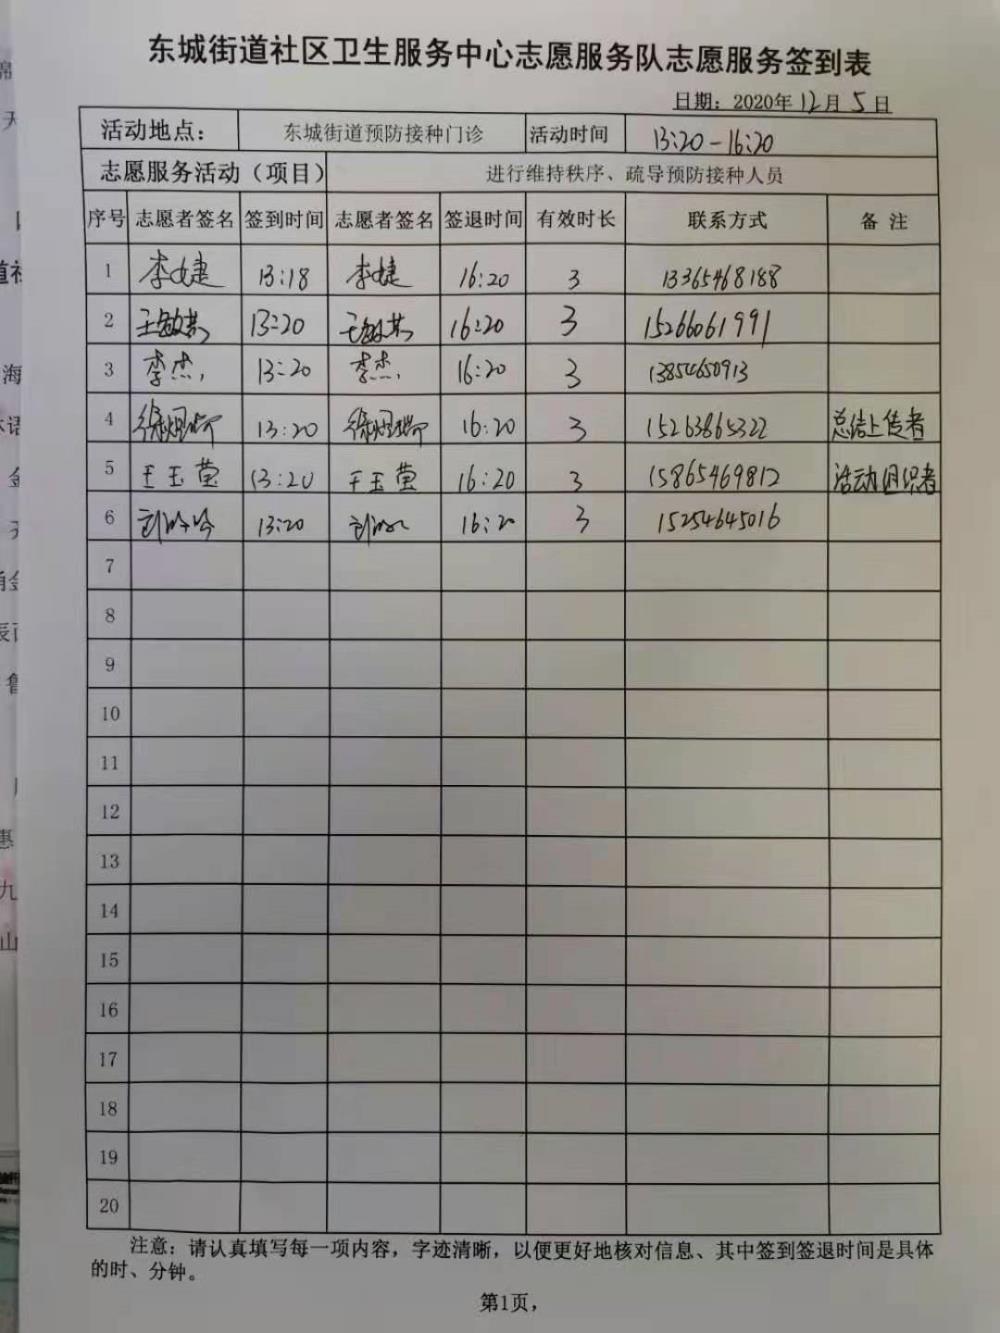 东城街道社区卫生服务中心志愿服务队志愿服务签到表
日期：2020年12月5日
活动地点： 东城街道预防接种门诊 活动时间 13:20-16:20
志愿服务活动（项目） 进行维持秩序、疏导预防接种人员
序号 志愿者签名 签到时间 志愿者签名 签退时间 有效时长 联系方式 备注
1 李婕 13:18 李婕 16:20 3 13365468188
2 13:20 16:20 3 15266061991
3 李杰 13:20 李杰 16:20 3 13854650913
4 13:20 16:20 3 15263865322 总结上传者
5 王玉莹 13:20 王玉莹 16:20 3 15865469812 活动组织者
6 13:20 16:20 3 15254645016
7
8
9
10
11
12
13
14
15
16
17
18
19
20
注意：请认真填写每一项内容，字迹清晰，以便更好地核对信息、其中签到签退时间是具体
的时、分钟。
第1页，